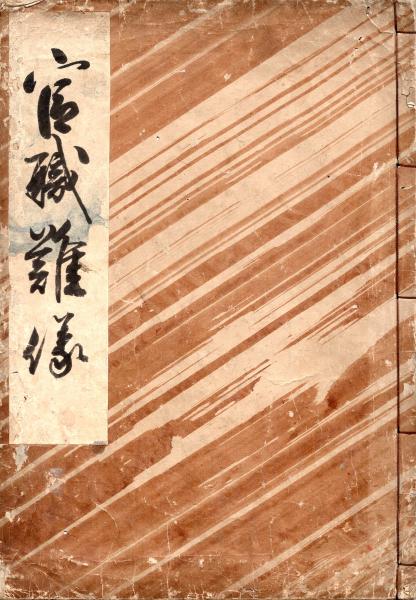 官職難儀